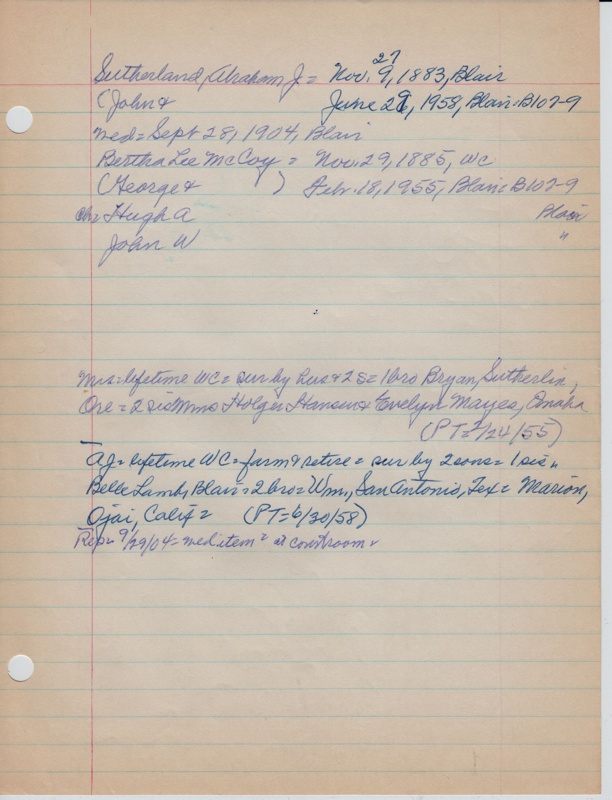 27
Sutherland, Abraham J. = Nov. 9, 1883, Blair
(John & June 29, 1958, Blair-B107-9
med = Sept 28, 1904, Blair
Bertha Lee McCoy = Nov. 29, 1885, WC
(George & ) Febr. 18, 1955, Blair B107-9
ch = Hugh A Blair
John W "
Mrs = lifetime WC = sur by hus & 2 s = 1 bro Bryan, Sutherlin,
Ore = 2 sis Mmes Holger Hansen & Evelyn Mayes, Omaha
(PT = 2/24/55)
AJ = lifetime WC = farm & retire = sur by 2 sons = 1 sis,
Belle Lamb, Blair = 2 bro = Wm., San Antonio, Tex = Marion,
Ojai, Calif = (PT = 6/30/58)
Rep = 9/29/04 = med item = at courtroom =